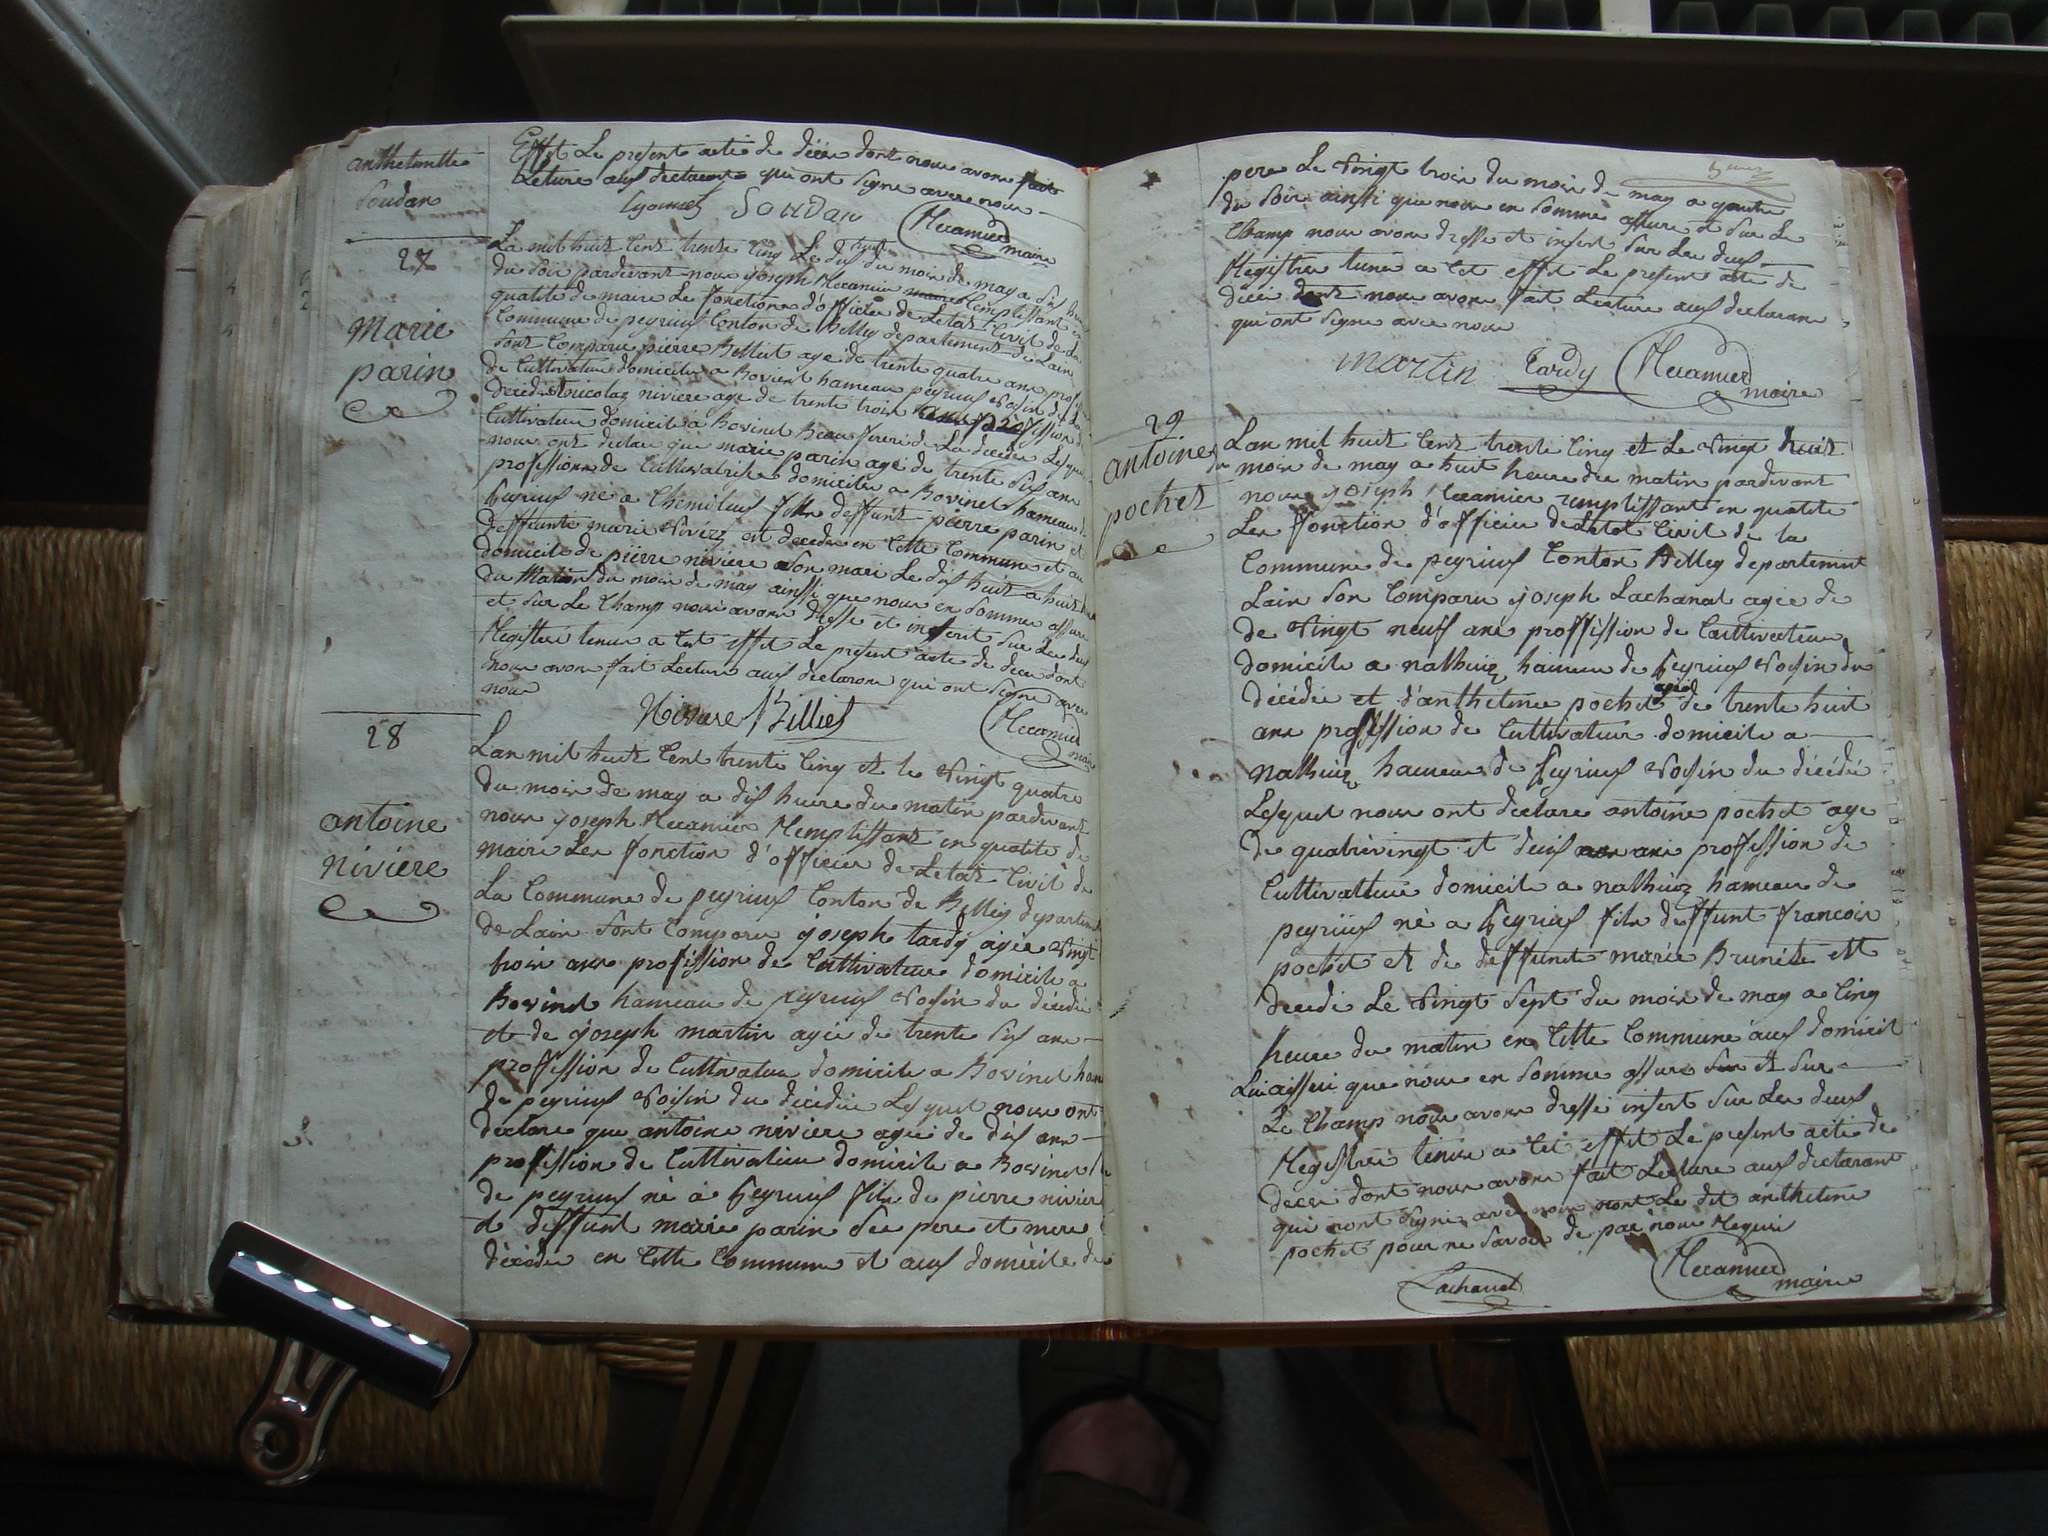 anthelmette
Soudan
Effet Le present acte de décè dont nous avons fait
Lecture aux declarants qui ont Signe avec nous
Soudan Mecamier
maire
27
Marie
parin
Lan mil huit Cent trente Cinq Le dix huit du moir de may a dix heure
du Soir pardevant nous joseph Mecamier Remplissant en
qualite de maire Le fonctions d'officier de Letat Civil de La
Commune de peyrieux Conton de Belley departement de Lain
Sont Comparu pierre Billiet age de trente quatre ans profession
de Cultivateur domicilie a Bovinet hameau peyrieux Voisin de La
décédé et nicolaz niviere age de trente trois ans profession de
Cultivateur domicile a Bovinet Beau frere de La décédé Lesquels
nous ont declare que marie parin agé de trente Six ans
profession de Cultivatrise domicilie a Bovinet hameau de
peyrieux né a Chemilieux fille deffunt pierre parin et
deffunte marie est decedee en Cette Commune et au
domicile de pierre niviere Son mari Le dix huit a huit heure
du Matin du moir de may ainssi que nous en Somme assure
et Sur Le Champ nous avons dresse et inscrit Sur Les deux
Registres tenus a Cet effet Le present acte de décè dont
nous avons fait Lecture aux declarans qui ont Signe avec
nous
Niviere Billiet Mecamier
maire
28
antoine
niviere
Lan mil huit Cent trente Cinq et le Vingt quatre
du moir de may a dix heure du matin pardevant
nous joseph Mecamier Remplissant en qualite de
maire Les fonction d'officier de Letat Civil de
La Commune de peyrieux Conton de Belley departement
de Lain Sont Comparu joseph tardy agée Vingt
trois ans profission de Cultivateur domicile a
Bovinet hameau de peyrieux Voisin du décédé
et de joseph martin agée de trente Six ans
proffission de Cultivateur domicile a Bovinet ham
de peyrieux Voisin du décédée Lesquel nous ont
declare que antoine niviere agée de dix ans
proffission de Cultivateur domicile a Bovinet
de peyrieux né a peyrieux fils de pierre niviere
et deffunt marie parin Ses pere et mere
décédé en Cette Commune et aux domicile de
pere Le Vingt trois du moir de may a quatre
du Soir ainssi que nous en Somme assure et Sur Le
Champ nous avons dresse et insert Sur Les deux
Registres tenus a Cet effet Le present acte de
décè dont nous avons fait Lecture aux declarans
qui ont Signe avec nous
Martin tardy Mecamier
maire
29
antoine
pochet
Lan mil huit Cent trente Cinq et Le Vingt huit
du moir de may a huit heure du matin pardevant
nous joseph Mecamier remplissant en qualite
Les fonction d'officier de Letat Civil de la
Commune de peyrieux Conton Belley departement
Lain Son Comparu joseph Lachanal agée de
de Vingt neuf ans proffission de Cultivateur
domicile a nathieu hameau de peyrieux Voisin du
décédée et d'anthelme pochet agée de trente huit
ans proffission de Cultivateur domicile a
Nathieu hameau de peyrieux Voisin du décédé
Lesquel nous ont declare antoine pochet age
de quatrevingt et deux ans proffission de
Cultivateur domicile a nathieu hameau de
peyrieux né a peyrieux fils deffunt francois
pochet et de deffunct marie Brunete et
décédé Le Vingt Sept du moir de may a Cinq
heure du matin en Cette Commune aux domicil
Lui ainssi que nous en Somme assure Sur et Sur
Le Champ nous avons dresse insert Sur Les deux
Registres tenus a Cet effet Le present acte de
décè dont nous avons fait Lecture aux declarant
qui nont Signe avec nous nont Le dit anthelme
pochet pour ne Savoir de par nous Requis
Lachanal Mecamier
maire